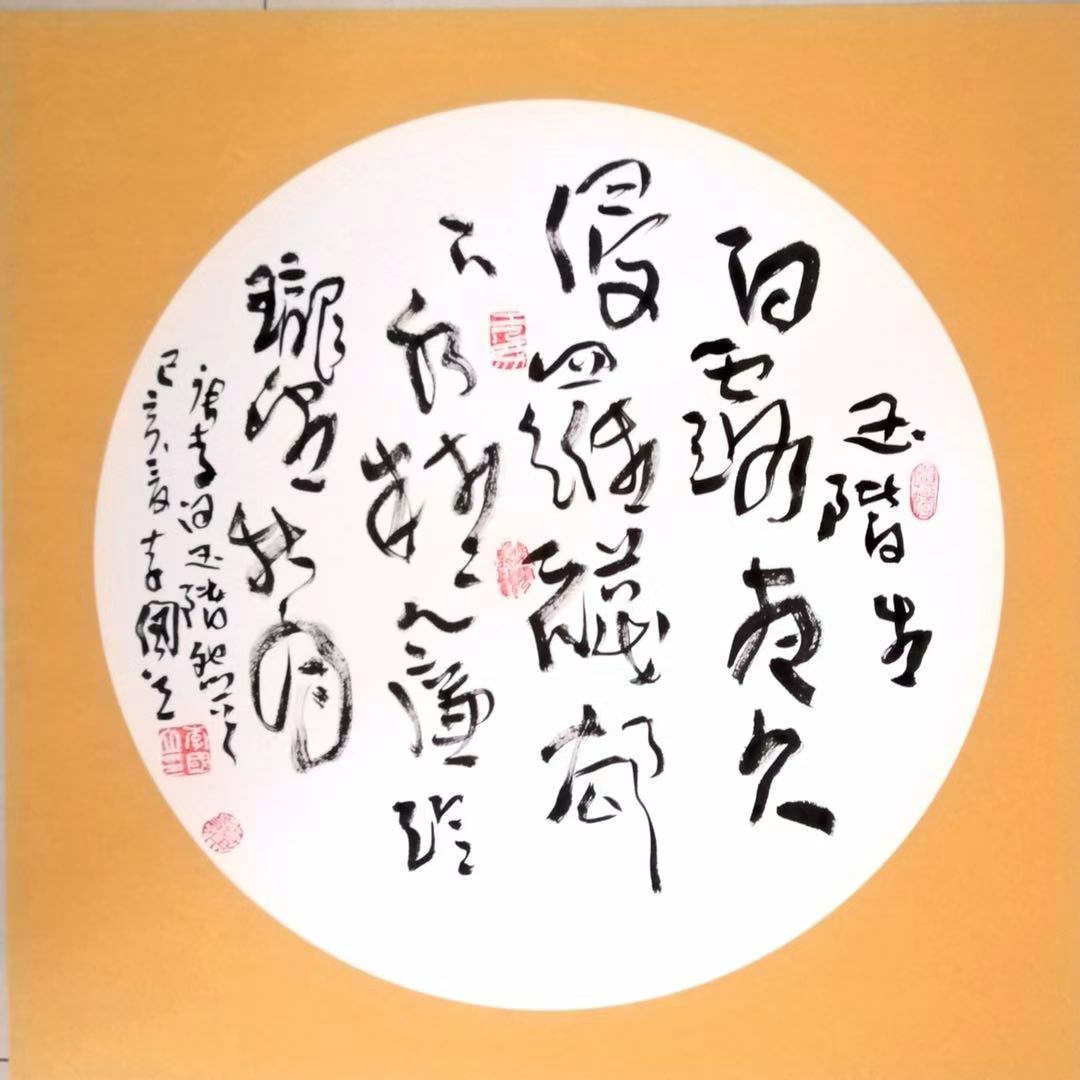 玉階生
白露夜久
侵羅襪却
下水精簾玲
瓏望秋月
唐李白玉階怨
己亥夏李國